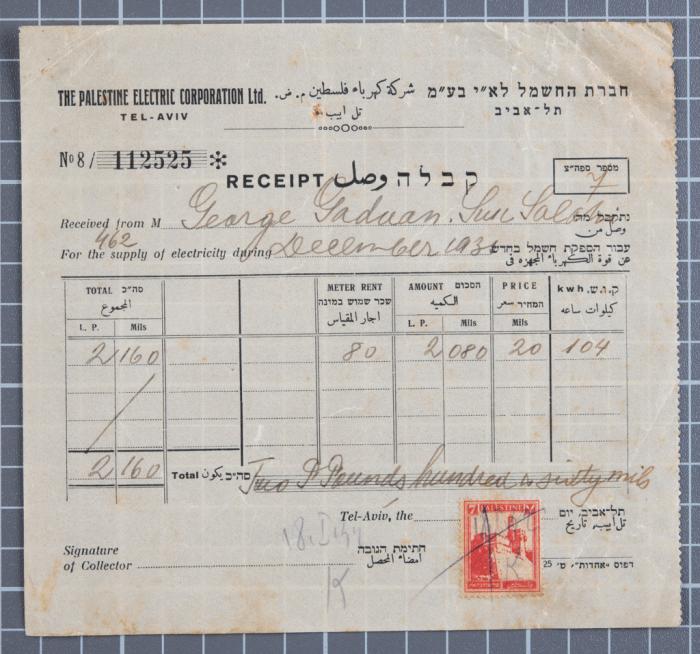 THE PALESTINE ELECTRIC CORPORATION Ltd. شركة كهرباء فلسطين م. ض. חברת החשמל לא"י בע"מ
TEL-AVIV تل ابيب תל-אביב
No 8/ 112525 *
RECEIPT وصل קבלה
מספר ספה"צ
7
Received from M George Gaduan. נתקבל מה
وصل من
462
For the supply of electricity during December עבור הספקת חשמל בחדש
عن قوة الكهرباء المجهزه في
TOTAL סה"כ METER RENT AMOUNT הסכום PRICE kwh ק.ו.ש.
المجموع שכר שמוש במונה الكميه המחיר سعر كيلوات ساعه
اجار المقياس
L. P. Mils L. P. Mils Mils
2 160 80 2 080 20 104
2 160 Total סה"כ يكون Two P Pounds hundred & sixty mils
Tel-Aviv, the תל-אביב, יום
تل ابيب تاريخ
7 PALESTINE 7
Signature חתימת הגובה
of Collector امضاء المحصل
דפוס "אחדות", ט' 25
K